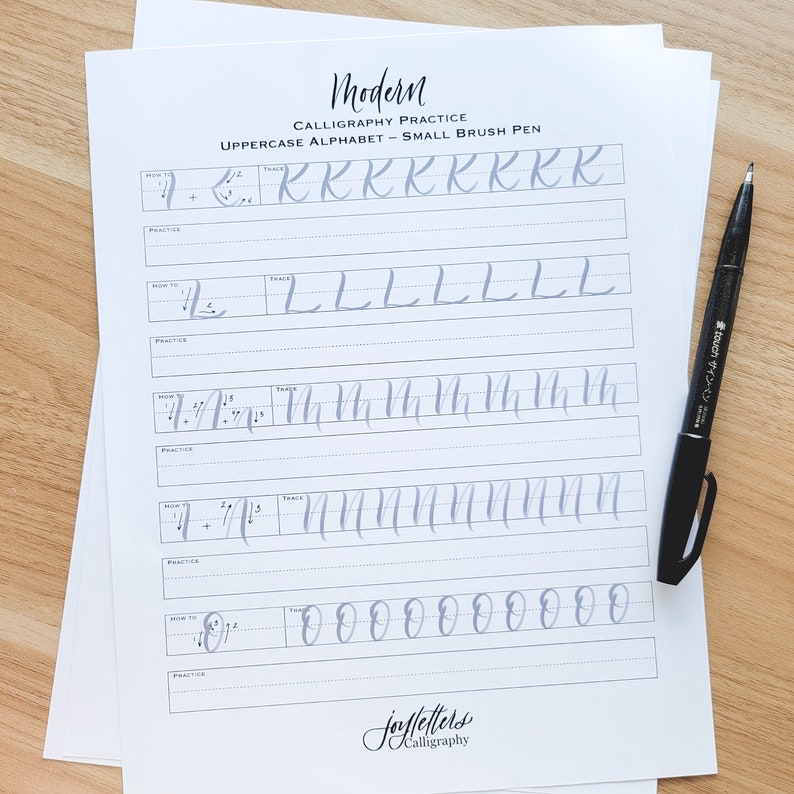 Modern
CALLIGRAPHY PRACTICE
UPPERCASE ALPHABET – SMALL BRUSH PEN
HOW TO 1 + 2 3 4 TRACE KKKKKKKK
PRACTICE
HOW TO 1 L 2 TRACE LLLLLLL
PRACTICE
HOW TO 1 + 2 3 + 4 5 TRACE MMMMMMM
PRACTICE
HOW TO 1 + 2 3 TRACE NNNNNNNNN
PRACTICE
HOW TO 1 O 3 2 TRACE OOOOOOOOOO
PRACTICE
joyletters
Calligraphy
touch サインペン